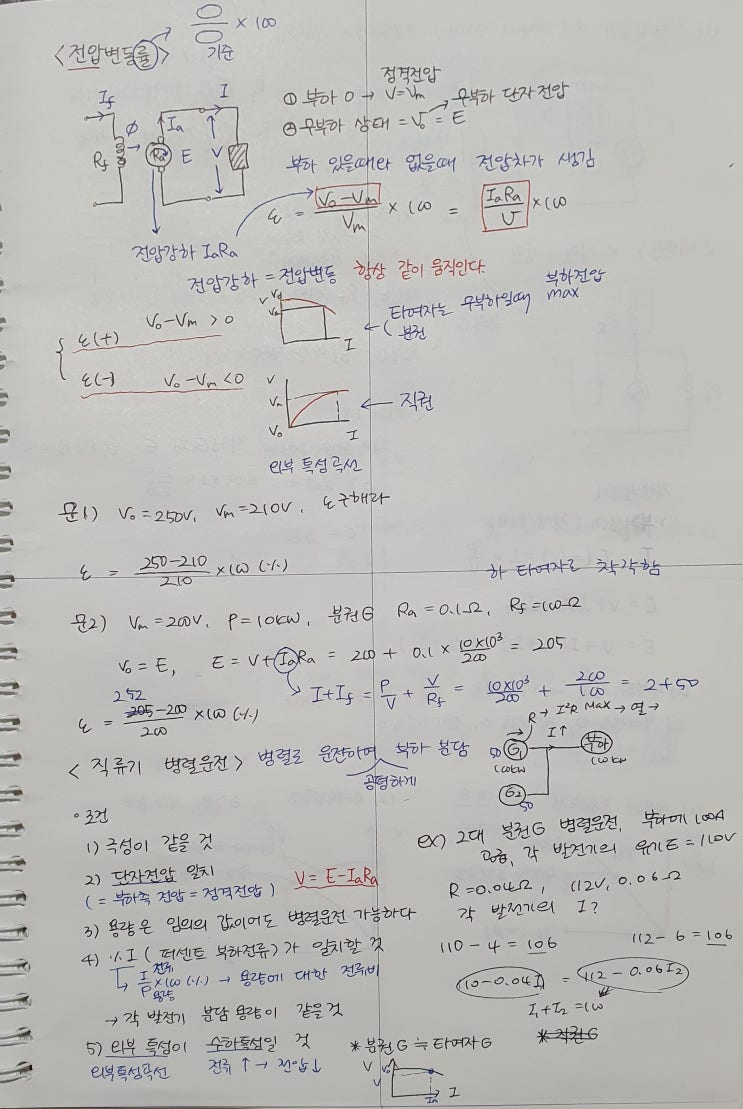 <전압변동률> → O/O × 100
기준
If Φ Ia I
Rf Ra E V
정격전압
① 부하 0 → V=Vn
② 무부하 상태 = V₀ = E → 무부하 단자전압
부하 있을때랑 없을때 전압차가 생김
ε = (V₀-Vn)/Vn × 100 = IaRa/V × 100
전압강하 IaRa
전압강하 = 전압변동 항상 같이 움직인다.
ε(+) V₀-Vn > 0
V V₀ Vn I
← 타여자는 무부하일때 부하전압 max
분권
ε(-) V₀-Vn < 0
V Vn V₀ I
← 직권
외부 특성곡선
문1) V₀=250V, Vn=210V, ε 구해라
ε = (250-210)/210 × 100 (%)
하 타여자로 착각함
문2) Vn=200V, P=10kW, 분권G Ra=0.1Ω, Rf=100Ω
V₀=E, E=V+IaRa = 200 + 0.1 × (10×10³)/200 = 205
→ I+If = P/V + V/Rf = (10×10³)/200 + 200/100 = 2+50
252
ε = (205-200)/200 × 100 (%)
R → I²R Max → 열 →
I↑
50 G1 부하
100kW 100kW
G2
50
<직류기 병렬운전> 병렬로 운전하여 부하 분담
공평하게
·조건
1) 극성이 같을 것
2) 단자전압 일치 V = E-IaRa
(=부하측 전압=정격전압)
3) 용량은 임의의 값이어도 병렬운전 가능하다
4) %I (퍼센트 부하전류)가 일치할 것
→ I전류/P용량 ×100 (%) → 용량에 대한 전류비
→ 각 발전기 분담 용량이 같을것
5) 외부 특성이 수하특성일 것
외부특성곡선 전류↑ → 전압↓
ex) 2대 분권G 병렬운전, 부하에 100A
공급, 각 발전기의 유기E=110V
R=0.04Ω, 112V, 0.06Ω
각 발전기의 I?
110-4=106 112-6=106
110-0.04I₁ = 112-0.06I₂
I₁+I₂=100
*직권G
*분권G ≒ 타여자G
V V₀ V In I